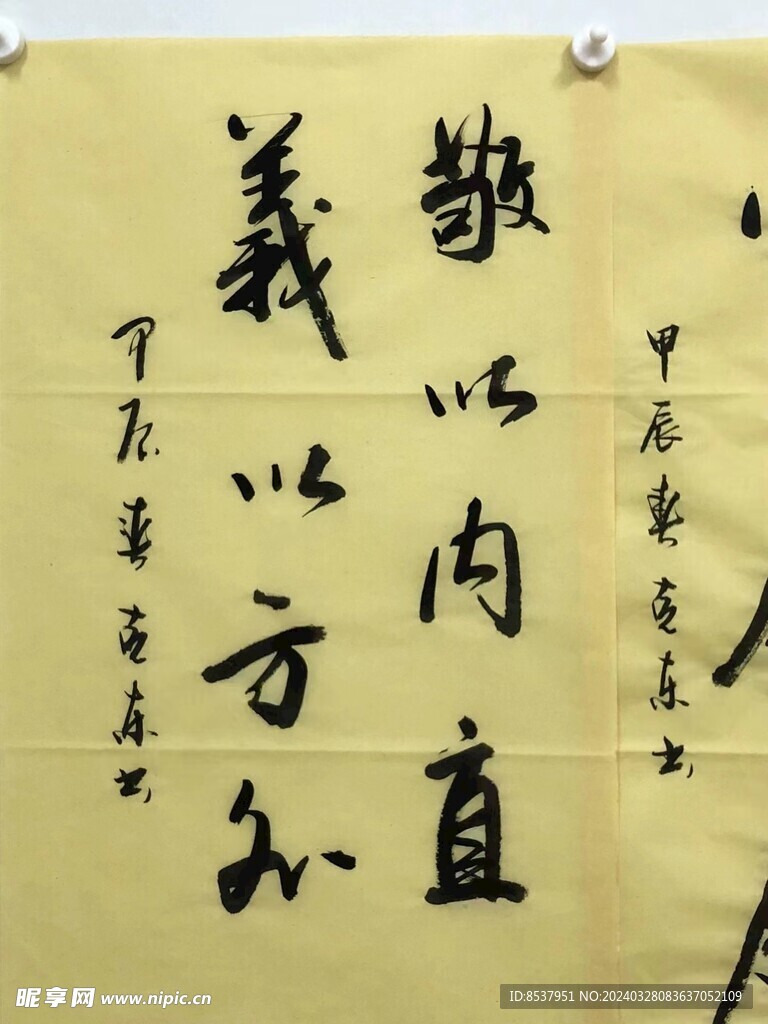 甲辰春克东书
敬以内直
義以方外
甲辰春克东书
昵享网 www.nipic.cn
ID:8537951 NO:20240328083637052109